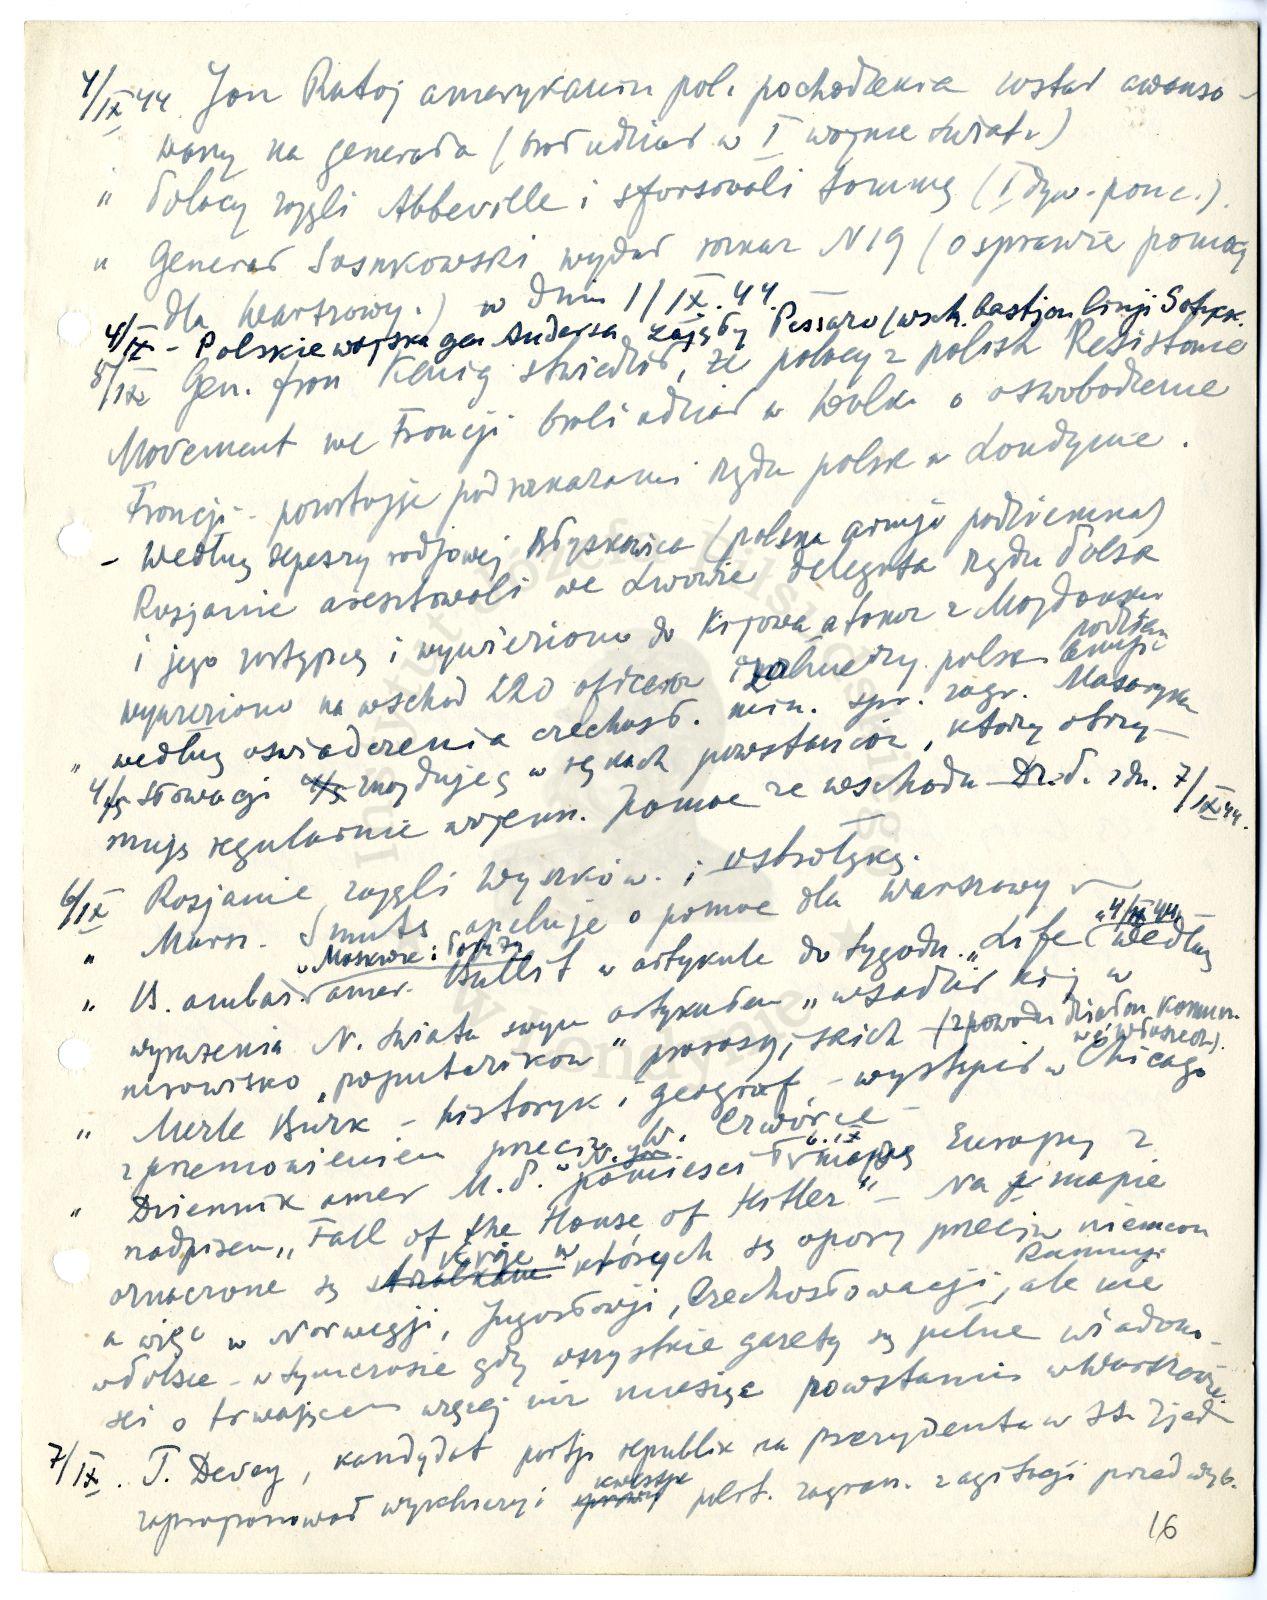 4/IX 44. Jan Rataj amerykanin pol. pochodzenia został awanso-
wany na generała (brał udział w I wojnie świat.)
" Polacy zajęli Abbeville i sforsowali Sommę (I dyw. panc.).
" Generał Sosnkowski wydał rozkaz N 19 (o sprawie pomocy
dla Warszawy.) w dniu 1/IX.44.
4/IX - Polskie wojska gen Andersa zajęły Pessaro (wsch. bastjon linji Gotyck.
5/IX Gen. fran Kenig stwierdził, że polacy z polish Resistance
Movement we Francji brali udział w walk. o oswobodzenie
Francji - pozostając pod rozkazami rządu polsk w Londynie.
- Według depeszy radjowej Błyskawica (polska armja podziemna)
Rosjanie aresztowali we Lwowie delegata rządu Polsk
i jego zastępcę i wywieziono do Kijowa a takoż z Majdanku
wywieziono na wschód 220 oficerów i żołnierzy polsk. podziem armji
" według oświadczenia czechosł. min. spr. zagr. Masaryka
4/IX Słowacji znajdujęą w rękach powstańców, którzy otrzy-
mują regularnie wojenn. pomoc ze wschodu Dz. P. z dn. 7/IX 44.
6/IX Rosjanie zajęli Wyszków. i Ostrołękę.
" Marsz. Smuts apeluje o pomoc dla Warszawy
" B. ambas. amer. "Moskwie i Paryżu Bullit w artykule do tygodn. "Life" "4/IX 44" (według
wyrażenia N. Świata swym artykułem "wsadził kij w
mrowisko "poputczików" prorosyjskich (z powodu działań komun. we Włoszech).
" Merle Burk - historyk i geograf - wystąpił w Chicago
z przemówieniem przeciw W. Czwórce -
" Dziennik amer M. P. "N. Y." pomieścił 6.IX mapę Europy z
nadpisem "Fall of the House of Hitler" - Na mapie
oznaczone są kraje w których są opory przeciw niemcom
a więc w Norwegji, Jugosławji, Czechosłowacji, Rumunji ale nie
w Polsce - w tymczasie gdy wszystkie gazety są pełne wiadomo-
ści o trwającem więcej niż miesiąc powstaniu w Warszawie.
7/IX. T. Devey, kandydat partji republik na prezydenta w St. Zjedn
zaproponował wykluczyć kwestje polit. zagran. z agitacji przedwyb.
16
Instytut Józefa Piłsudskiego
w Londynie